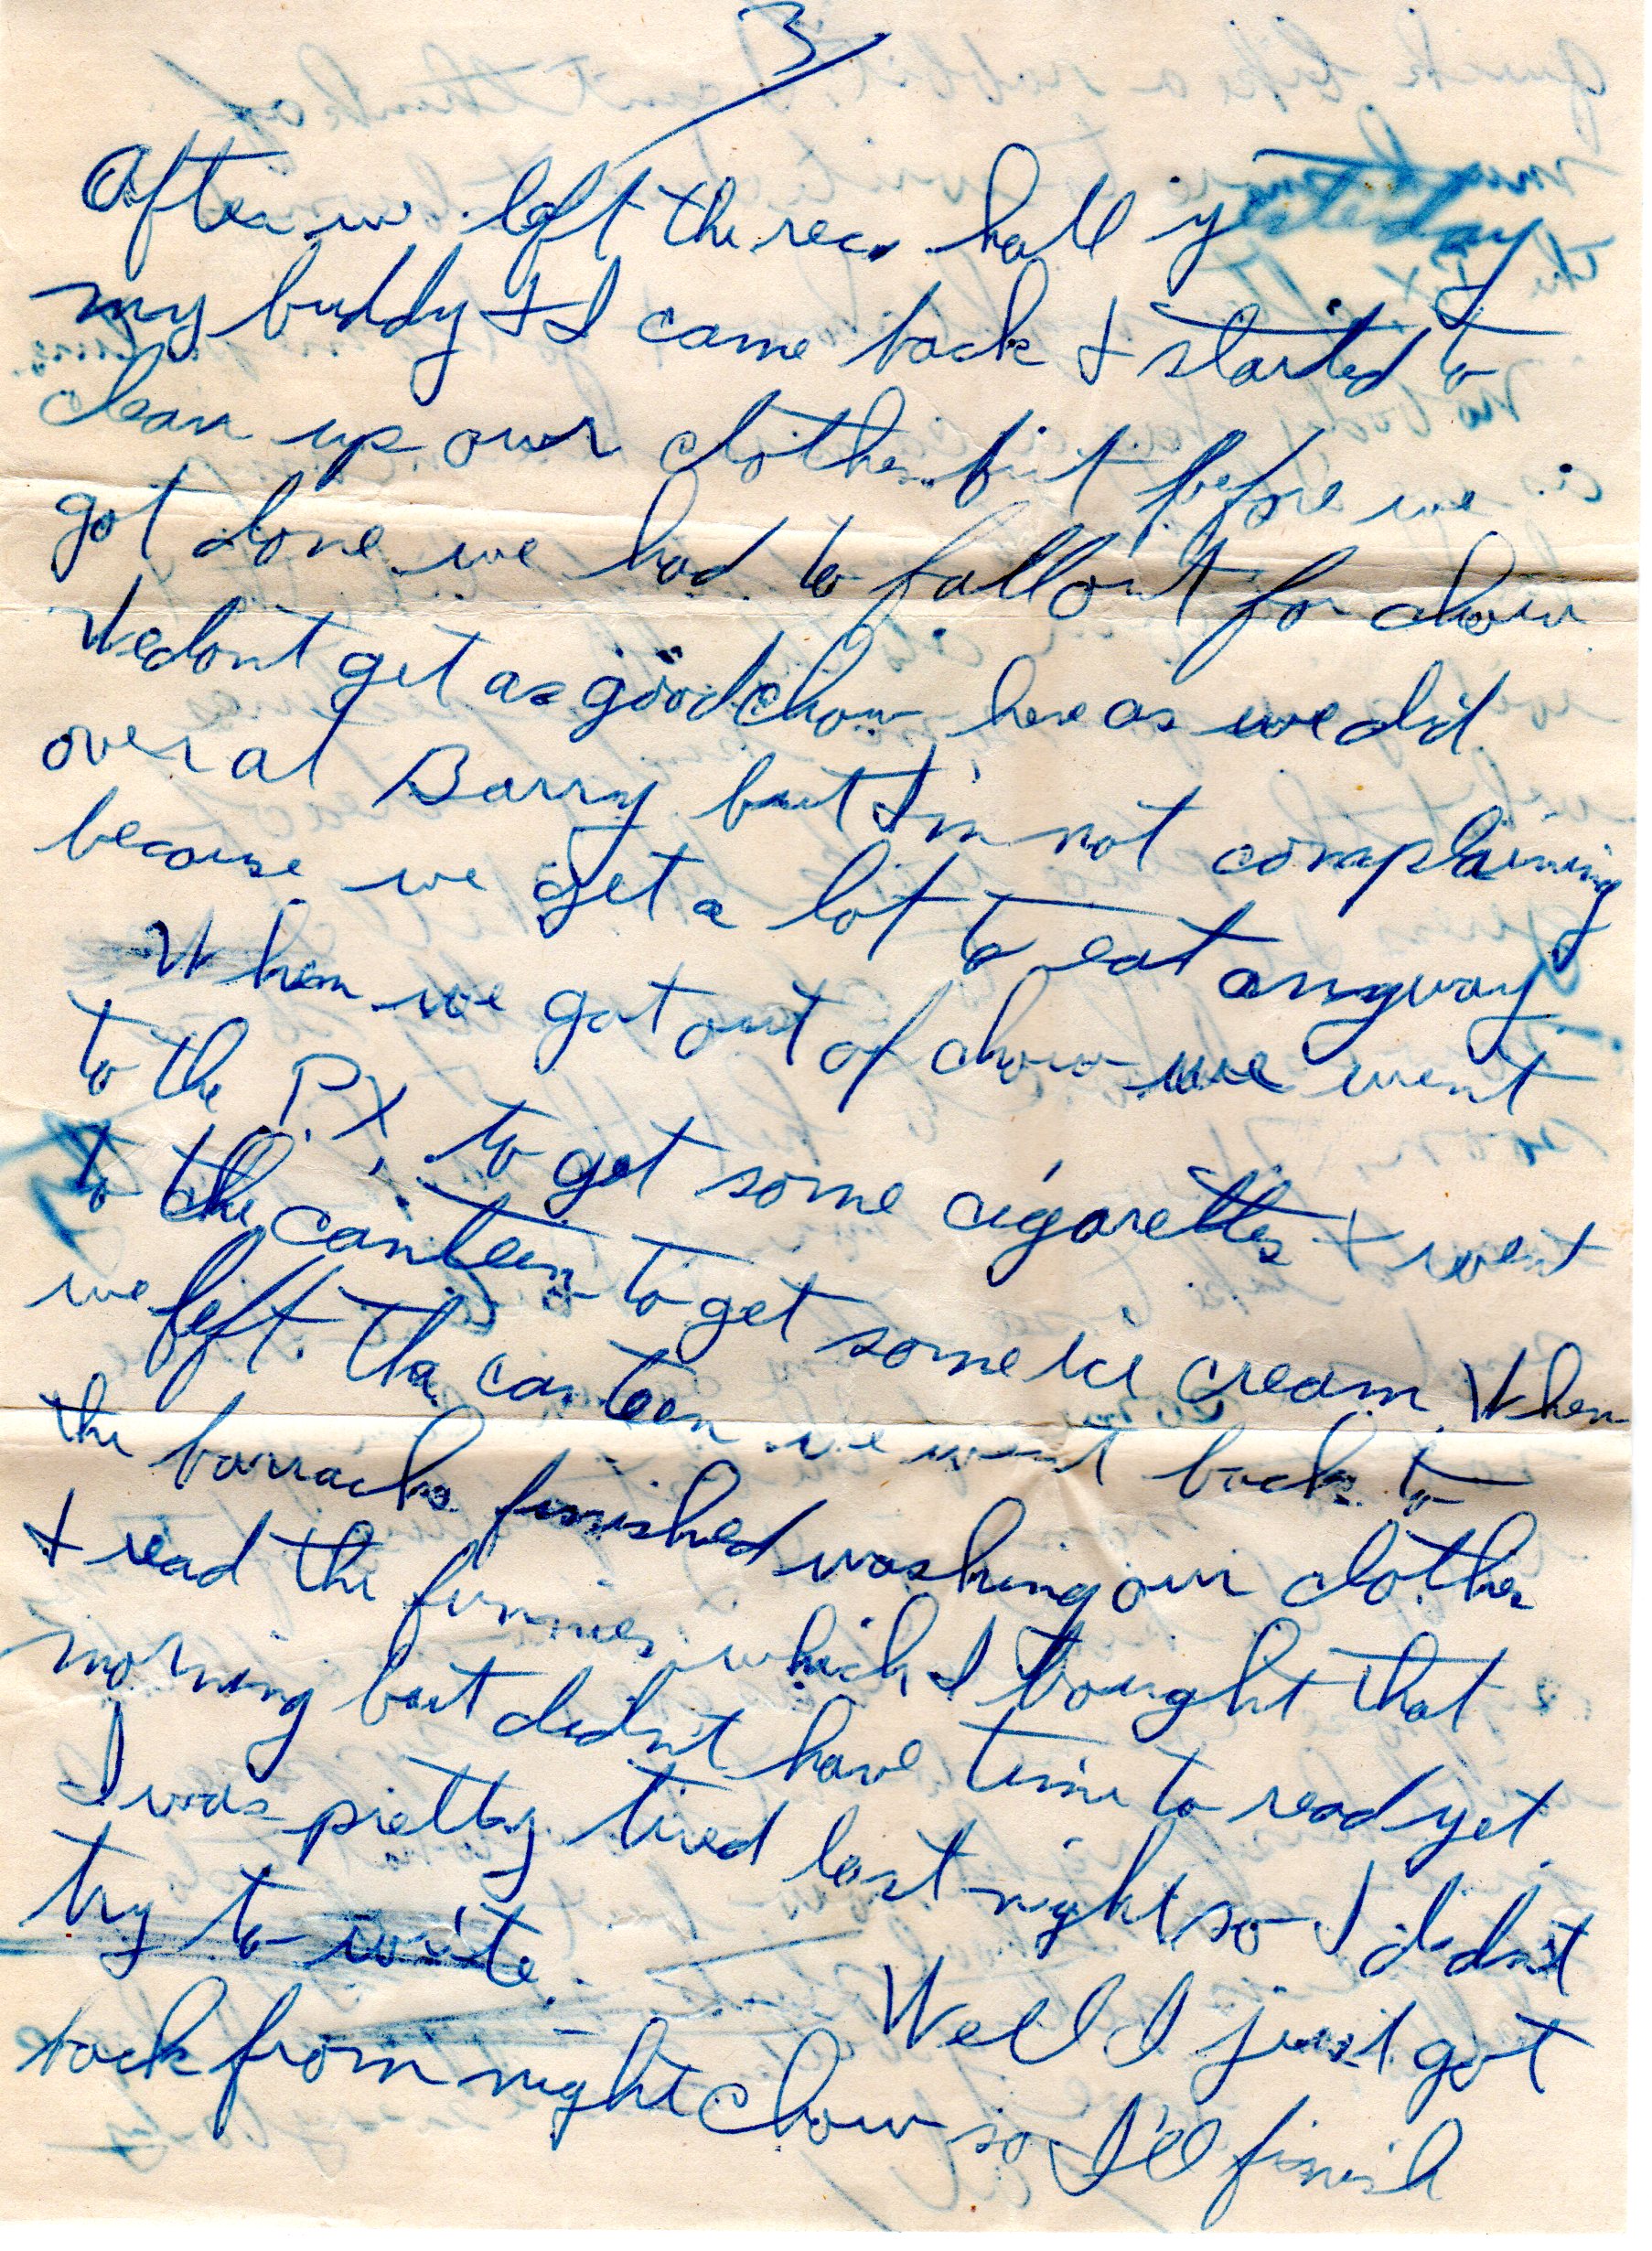 3
After we left the rec. hall yesterday
my buddy + I came back + started to
clean up our clothes but before we
got done we had to fall out for chow
We dont get as good chow here as we did
over at Barry but I'm not complaining
because we get a lot to eat anyway
When we got out of chow we went
to the P.X. to get some cigarettes + went
to the canteen to get some ice cream. When
we left the canteen we went back to
the barracks finished washing our clothes
+ read the funnies which I bought that
morning but didn't have time to read yet.
I was pretty tired last night so I didn't
try to write.
Well I just got
back from night chow so I'll finish